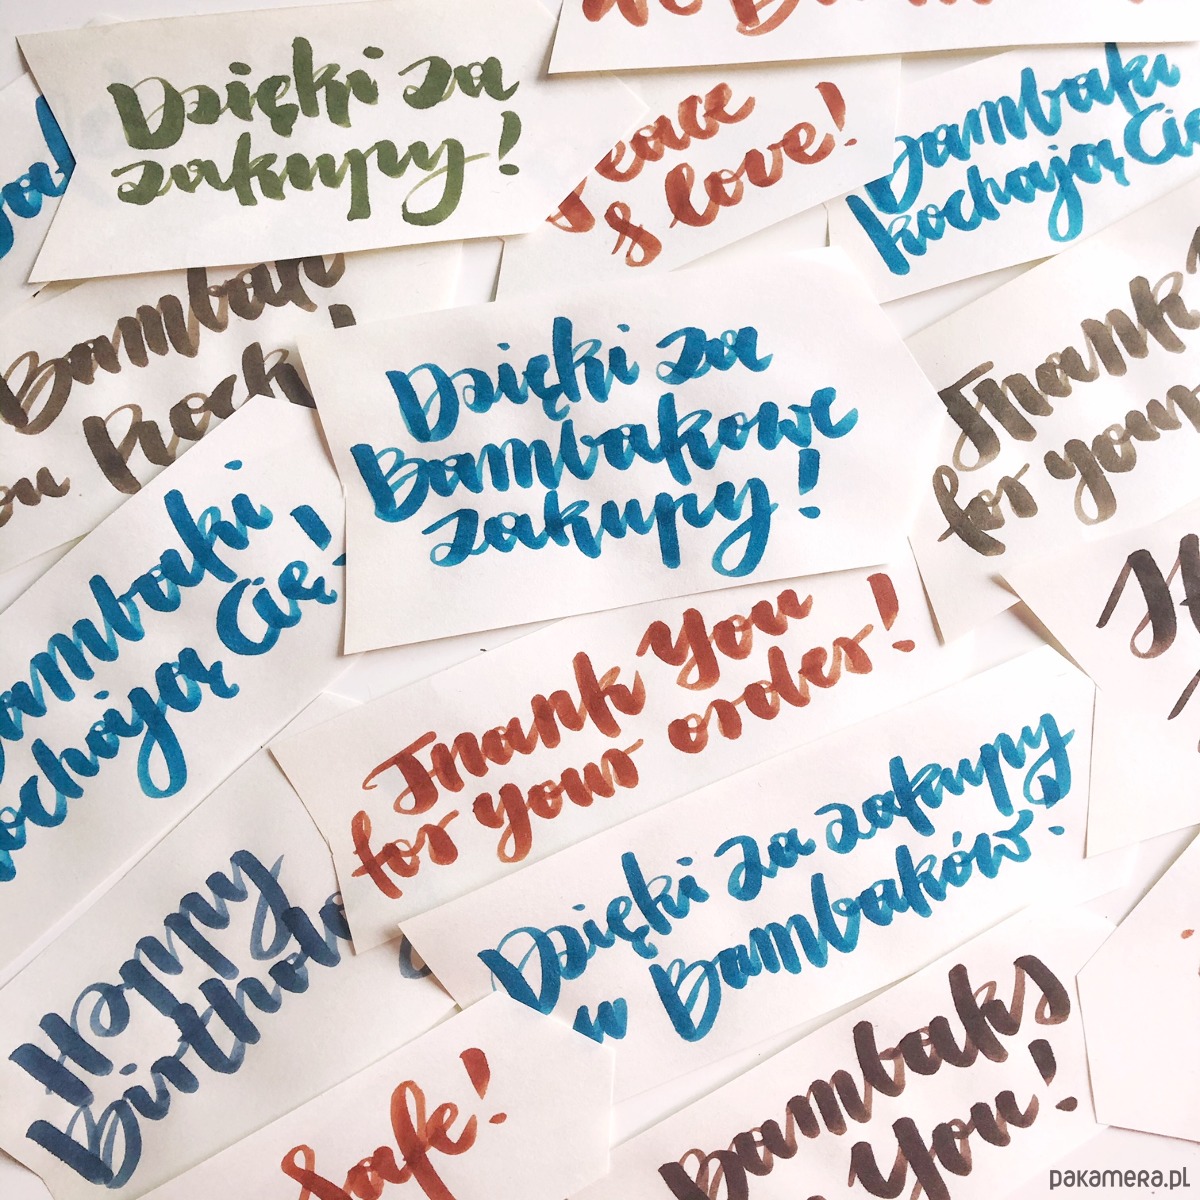 Dzięki za
zakupy!
Peace
& love!
Bambaki
kochają Cię
Bambaki
you Rock!
Dzięki za
Bambakowe
zakupy!
Thank
for your
Bambaki
kochają Cię!
Thank You
for your order!
Happy
Birthda
Dzięki za zakupy
w Bambaków!
Safe!
Bambaks
You!
pakamera.pl